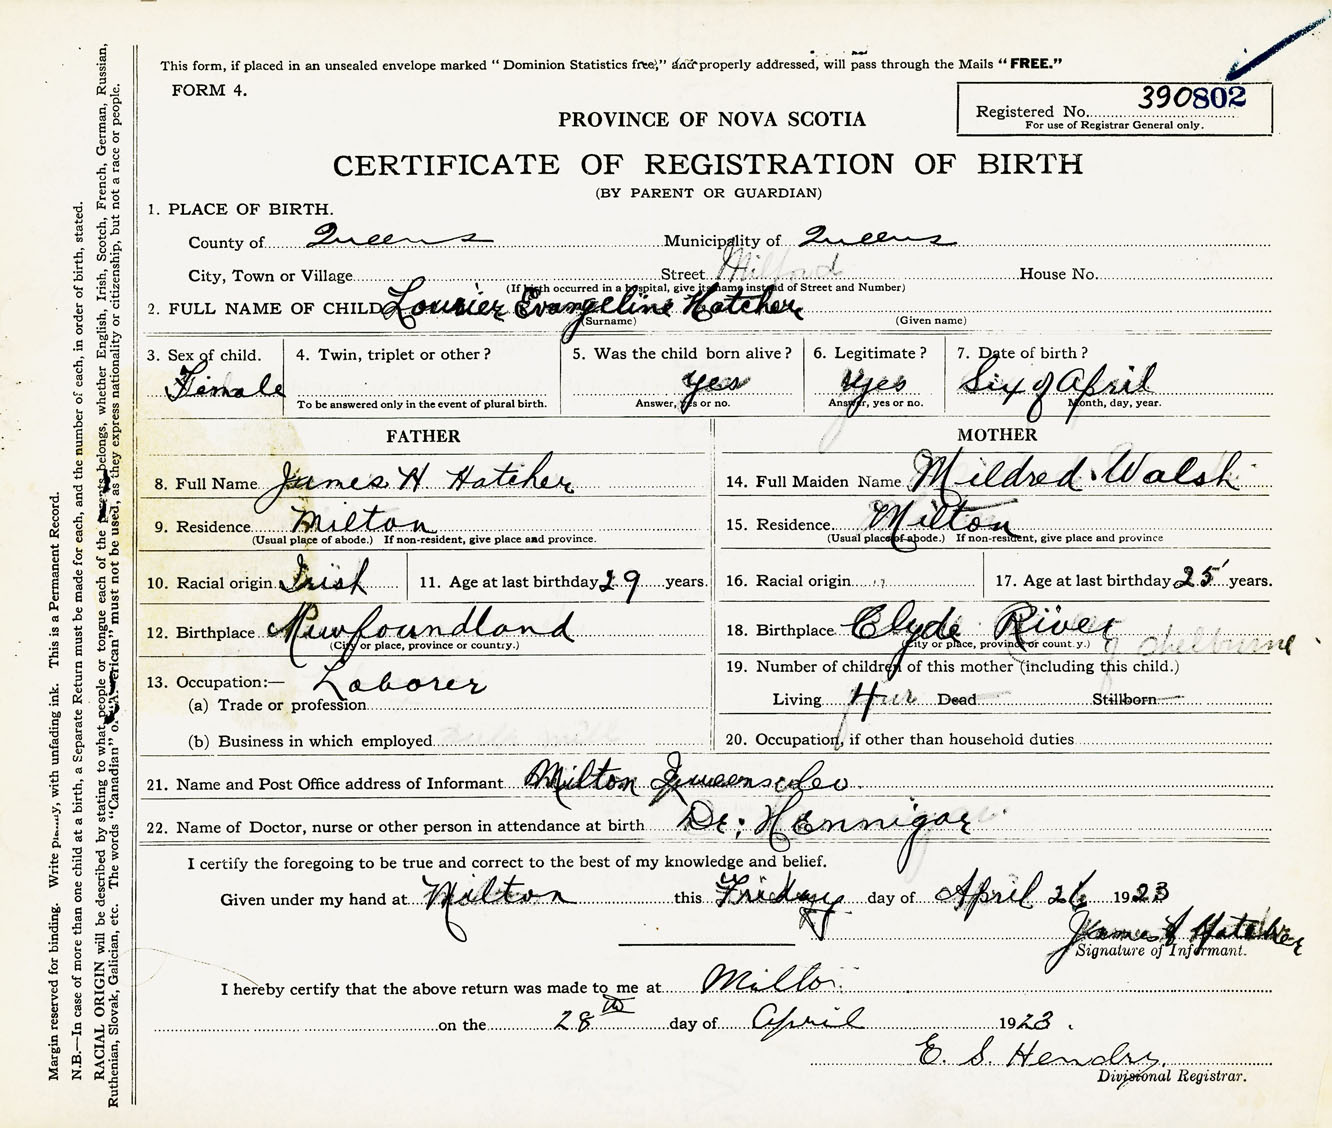 This form, if placed in an unsealed envelope marked "Dominion Statistics free," and properly addressed, will pass through the Mails "FREE."
FORM 4.
Registered No. 390802
For use of Registrar General only.
PROVINCE OF NOVA SCOTIA
CERTIFICATE OF REGISTRATION OF BIRTH
(BY PARENT OR GUARDIAN)
1. PLACE OF BIRTH.
County of Queens Municipality of Queens
City, Town or Village Street Milford House No.
(If birth occurred in a hospital, give its name instead of Street and Number)
2. FULL NAME OF CHILD Lourier Evangeline Hatcher
(Surname) (Given name)
3. Sex of child. 4. Twin, triplet or other? 5. Was the child born alive? 6. Legitimate? 7. Date of birth?
Female yes yes Six of April
To be answered only in the event of plural birth. Answer, yes or no. Answer, yes or no. Month, day, year.
FATHER MOTHER
8. Full Name James H Hatcher 14. Full Maiden Name Mildred Walsh
9. Residence Milton 15. Residence Milton
(Usual place of abode.) If non-resident, give place and province. (Usual place of abode.) If non-resident, give place and province
10. Racial origin Irish 11. Age at last birthday 29 years. 16. Racial origin " 17. Age at last birthday 25 years.
12. Birthplace Newfoundland 18. Birthplace Clyde River Shelburne
(City or place, province or country.) (City or place, province or country.)
13. Occupation:— Laborer 19. Number of children of this mother (including this child.)
(a) Trade or profession Living Dead Stillborn
(b) Business in which employed 20. Occupation, if other than household duties
21. Name and Post Office address of Informant Milton Queens
22. Name of Doctor, nurse or other person in attendance at birth Dr. Hennigar
I certify the foregoing to be true and correct to the best of my knowledge and belief.
Given under my hand at Milton this Friday day of April 26 1923
James Hatcher
Signature of Informant.
I hereby certify that the above return was made to me at Milton
on the 28th day of April 1923.
E. S. Hendry
Divisional Registrar.
Margin reserved for binding. Write with unfading ink. This is a Permanent Record.
N.B.—In case of more than one child at a birth, a Separate Return must be made for each, and the number of each, in order of birth, stated.
RACIAL ORIGIN will be described by stating to what people or tongue each of the parents belongs, whether English, Irish, Scotch, French, German, Russian,
Ruthenian, Slovak, Galician, etc. The words "Canadian" or "American" must not be used, as they express nationality or citizenship, but not a race or people.